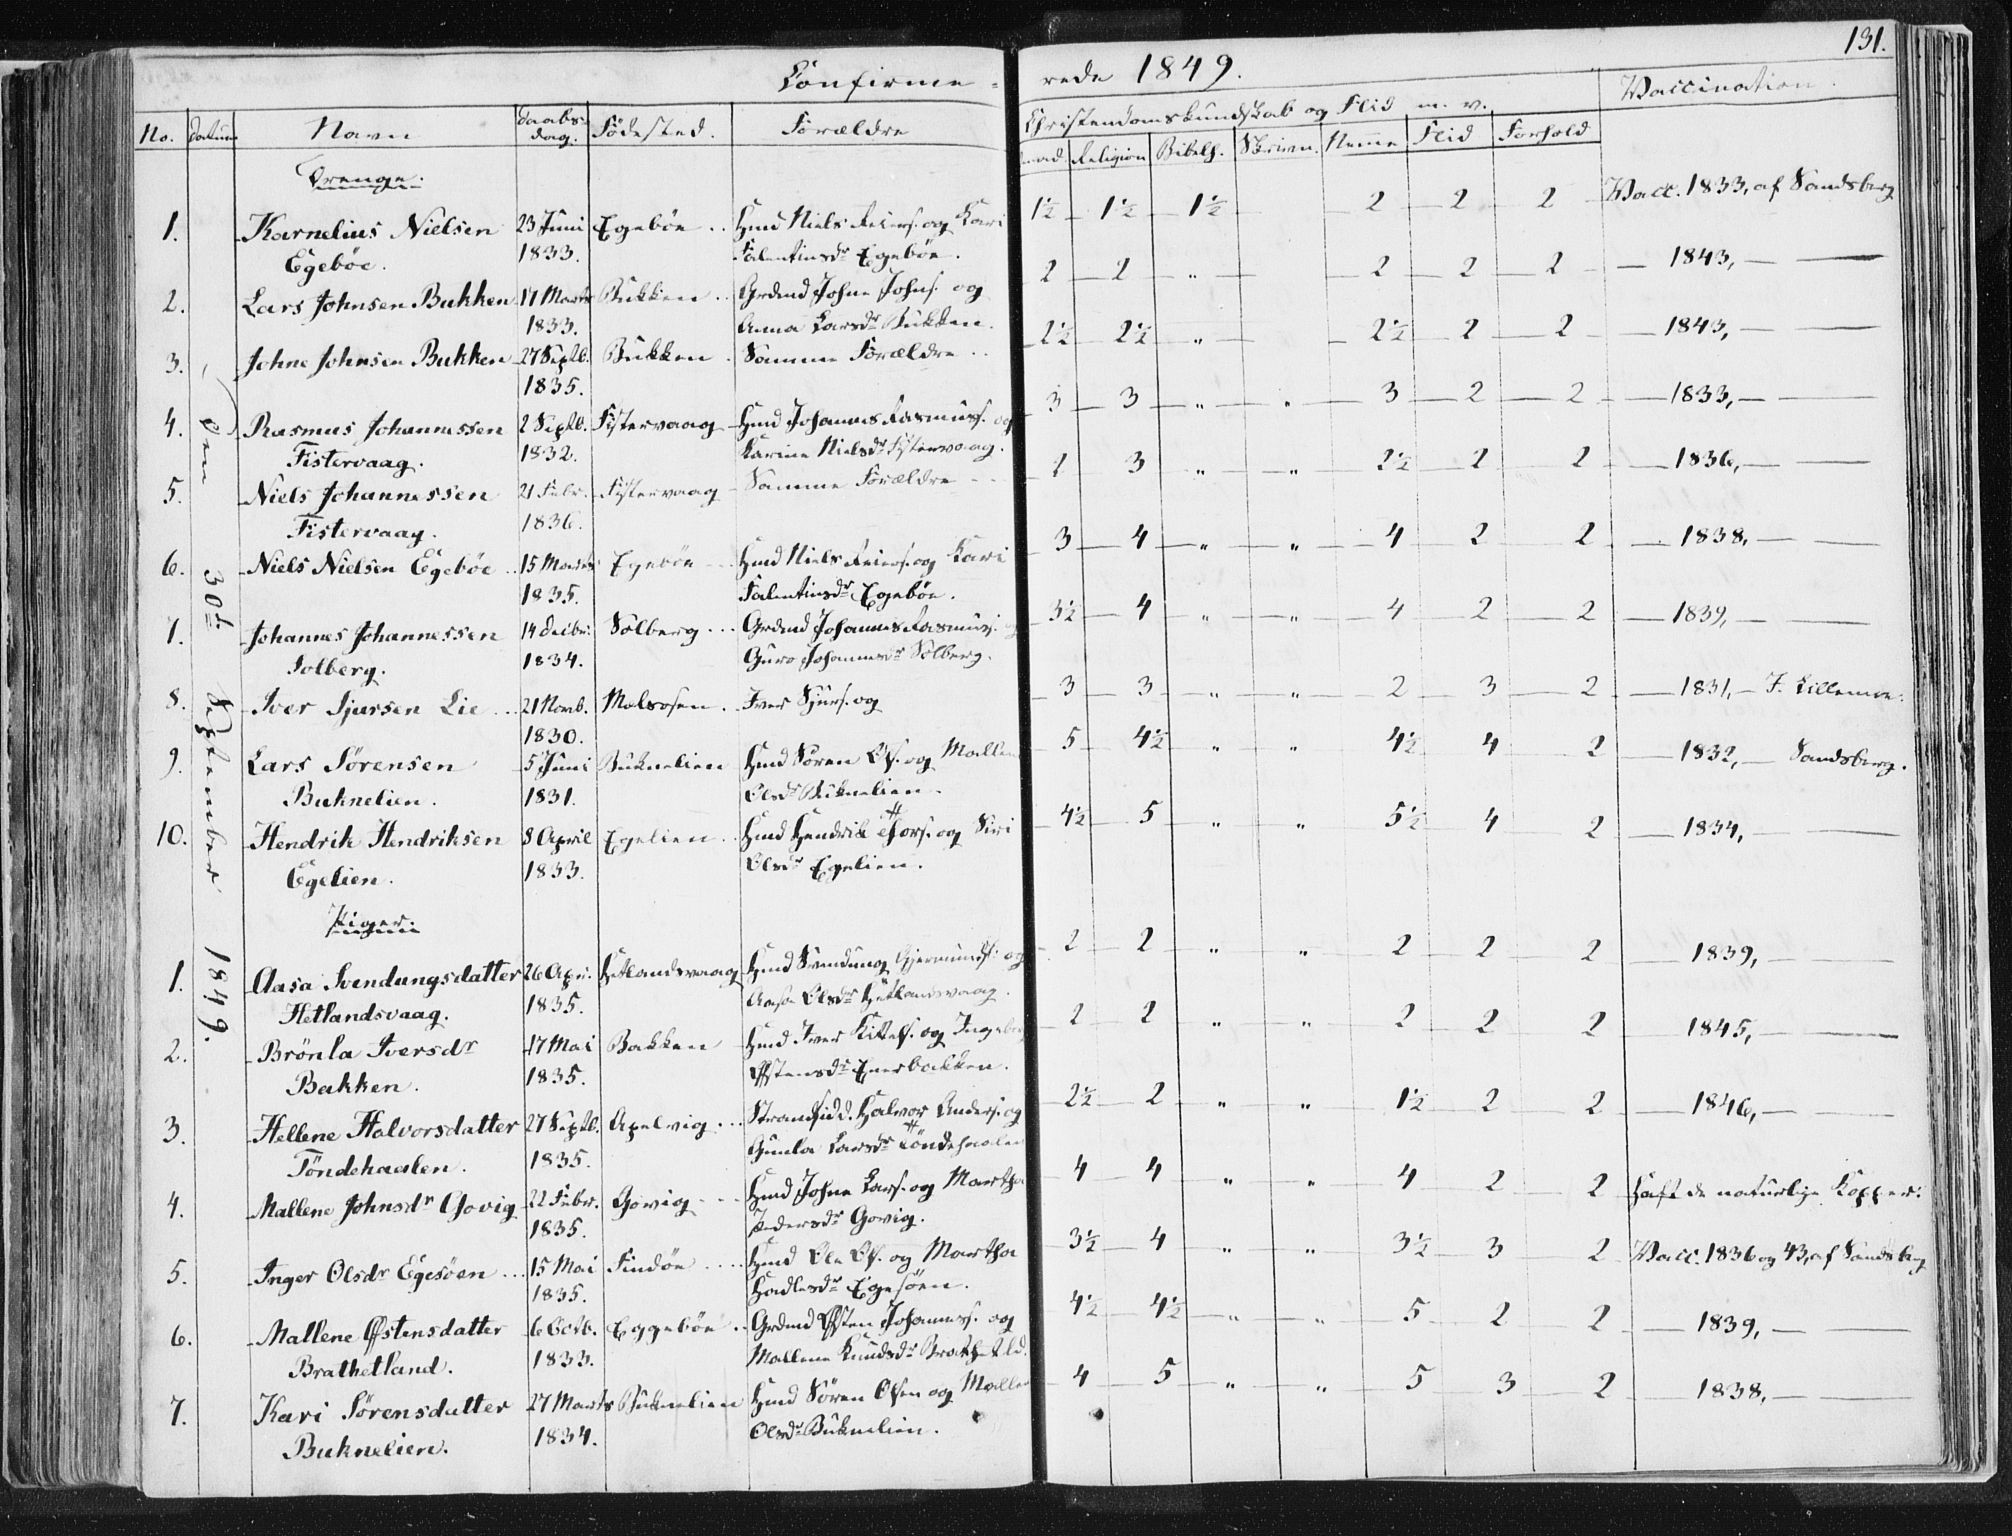 131.
Confirme - rede 1849.
No. Datum Navn Daabs- dag. Fødested. Forældre Christendomskundskab og Flid m. v. Vaccination.
Religion Bibelh. Skrivn. Nemme Flid Forhold
Den 30te September 1849.
Drenge.
1. Karnelius Nielsen 23 Juni Egebøe .. Hmd Niels Reiers. og Kari 1½ 1½ 1½ 2 2 2 Vacc. 1833, af Sandsberg
Egebøe. 1833. Falentinsdr Egebøe.
2. Lars Johnsen Bukken 17 Marts Bukken .. Grdmd Johne Johns. og 2 2 " 2 2 2 — 1843, —
1833. Anna Larsdr Bukken.
3. Johne Johnsen Bukken 27 Septb. Bukken . Samme Forældre .. 2½ 2½ " 2½ 2 2 — 1843, —
1835.
4. Rasmus Johannessen 2 Septb. Fistervaag Hmd Johannes Rasmuss. og 3 3 " " 3 2 2 — 1833, —
Fistervaag. 1832. Karine Nielsdr Fistervaag.
5. Niels Johannessen 21 Febr. Fistervaag Samme Forældre 2 3 " " 2½ 2 2 — 1836, —
Fistervaag. 1836.
6. Niels Nielsen Egebøe .. 15 Marts Egebøe Hmd Niels Reiers. og Kari 3 4 " " 4 2 2 — 1838, —
1835. Falentinsdr Egebøe.
7. Johannes Johannessen 14 Decbr. Solberg ... Grdmd Johannes Rasmus. og 3½ 4 " " 4 2 2 — 1839, —
Solberg. 1834. Guro Johannesdr Solberg.
8. Iver Sjursen Lie .. 21 Novb. Malsosen . Iver Sjurs. og 3 3 " " 2 3 2 — 1831, — F. Lillemoe.
1830.
9. Lars Sørensen 5 Juni Buknelien Hmd Søren Ols. og Mallen 5 4½ " " 4½ 4 2 — 1832, — Sandsberg.
Buknelien. 1831. Olsdr Buknelien.
10. Hendrik Hendriksen 8 April Egelien . Hmd Hendrik Tors. og Siri 4½ 5 " " 5½ 4 2 — 1834, —
Egelien. 1833. Olsdr Egelien.
Piger.
1. Aasa Svendungsdatter 26 Apr. Hetlandsvaag Hmd Svendung Gjermunds. og 2 2 " " 2 2 2 — 1839, —
Hetlandsvaag. 1835. Aasa Olsdr Hetlandsvaag.
2. Brönla Iversdr 17 Mai Bakken Hmd Iver Kittels. og Ingebor 2 2 " " 2 2 2 1845, —
Bakken. 1835. Østensdr Enerbakken.
3. Hellene Halvorsdatter 27 Septb. Apelvig ... Strandsidd. Halvor Anders. og 2½ 2 " " 1½ 2 2 1846, —
Töndehaalen. 1835. Gunla Larsdr Töndehaalen
4. Mallene Johnsdr Govig 22 Febr. Govig Hmd Johne Lars. og Martha 4 4 " " 4 2 2 Haft de naturlige Kopper.
1835. Pedersdr Govig.
5. Inger Olsdr Egesöen ... 15 Mai Findöe .... Hmd Ole Ols. og Martha 3½ 4 " " 3½ 3 2 Vacc. 1836 og 43, af Sandsberg
1835. Hadlesdr Egesöen.
6. Mallene Østensdatter 6 Octb. Eggebøe .. Grdmd Østen Johanness. og 4½ 4½ " " 5 2 2 — 1839, —
Brathetland. 1833. Mallene Knudsdr Brathetld.
7. Kari Sörensdatter 27 Marts Buknelien Hmd Sören Olsen og Mallen 4 5 " " 5 3 2 1838, —
Buknelien. 1834. Olsdr Buknelien.